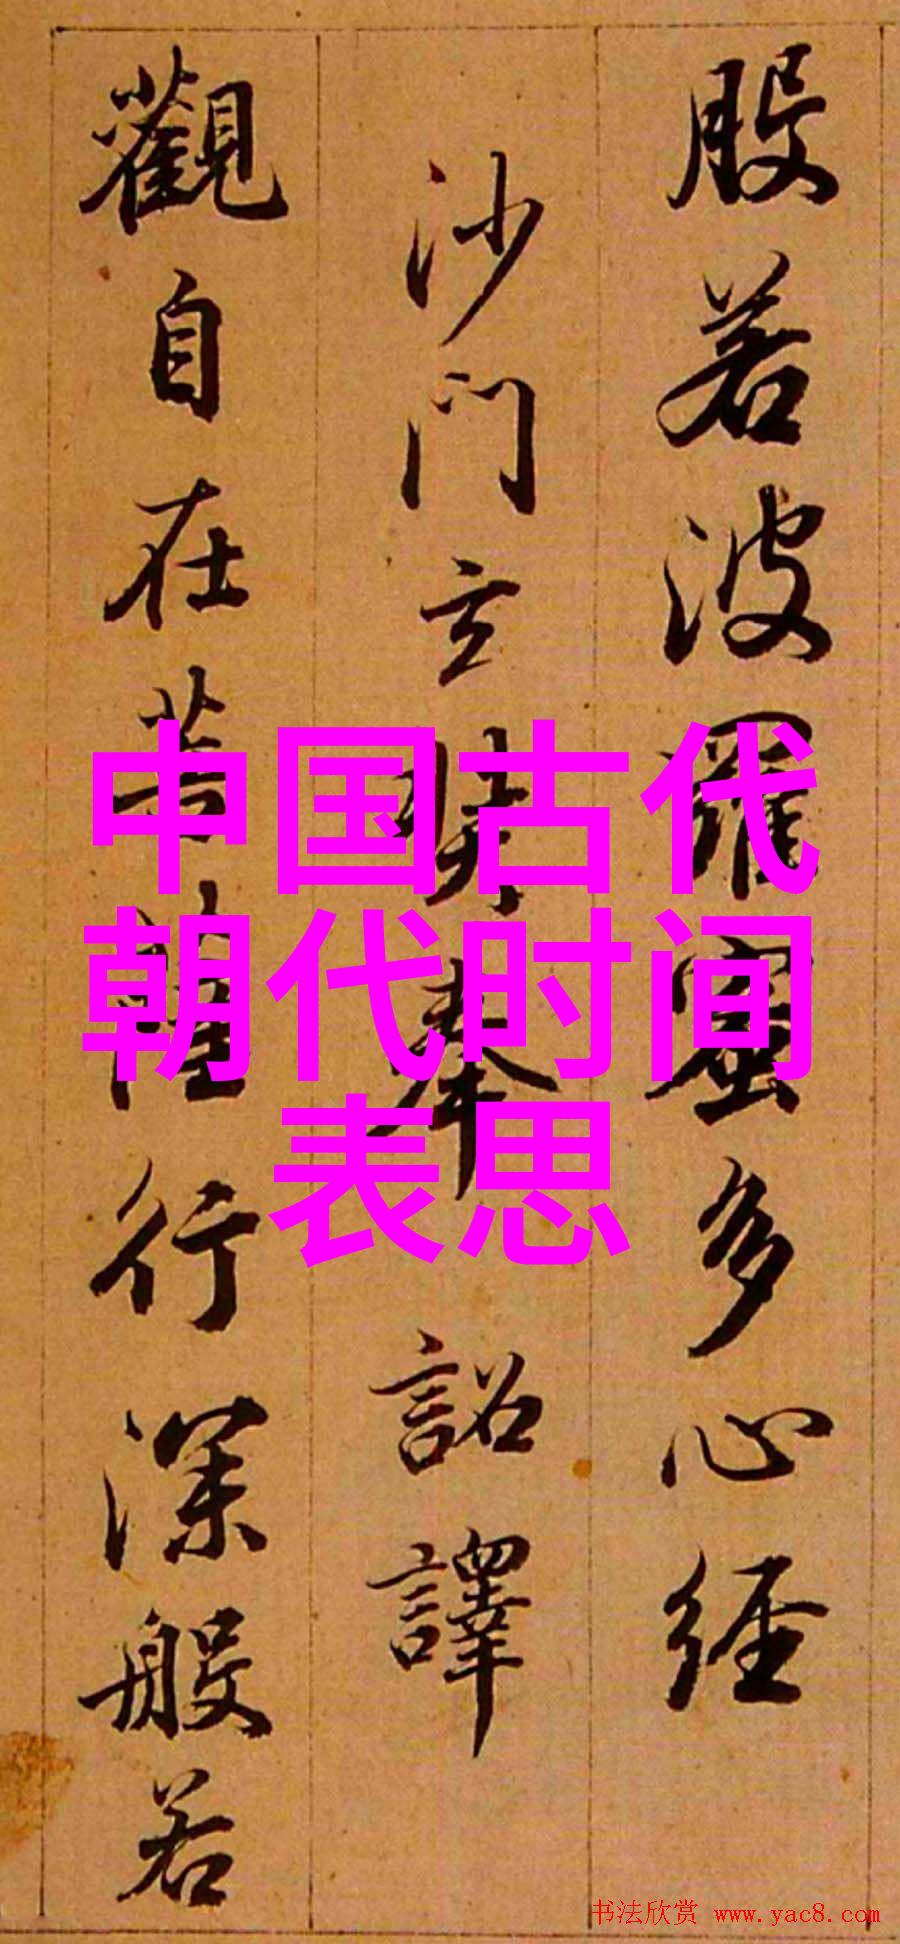 般若波羅蜜多心經
沙門玄奘奉詔譯
觀自在菩薩行深般若
中国古代
朝代时间
表思
书法欣赏 www.yac8.com